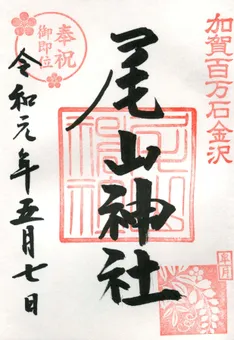 加賀百万石金沢
奉祝
御即位
尾山神社
皐月
令和元年五月七日